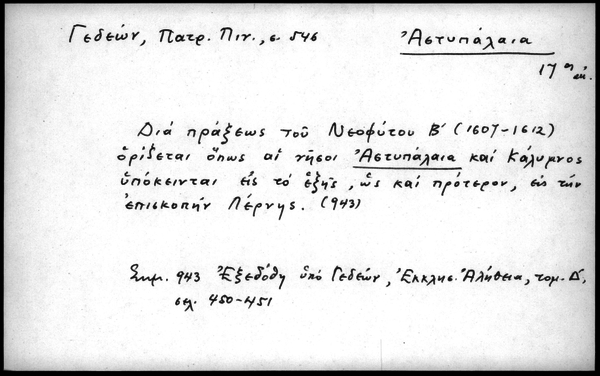 Γεδεών, Πατρ. Πιν., σ. 546
Ἀστυπάλαια
17ος αἰ.
Διά πράξεως τοῦ Νεοφύτου Β' (1607-1612)
ὁρίζεται ὅπως αἱ νῆσοι Ἀστυπάλαια καί Κάλυμνος
ὑπόκεινται εἰς τό ἑξῆς, ὡς καί πρότερον, εἰς τήν
ἐπισκοπήν Λέρνης. (943)
Σημ. 943 Ἐξεδόθη ὑπό Γεδεών, Ἐκκλησ. Ἀλήθεια, τομ. Δ',
σελ. 450-451